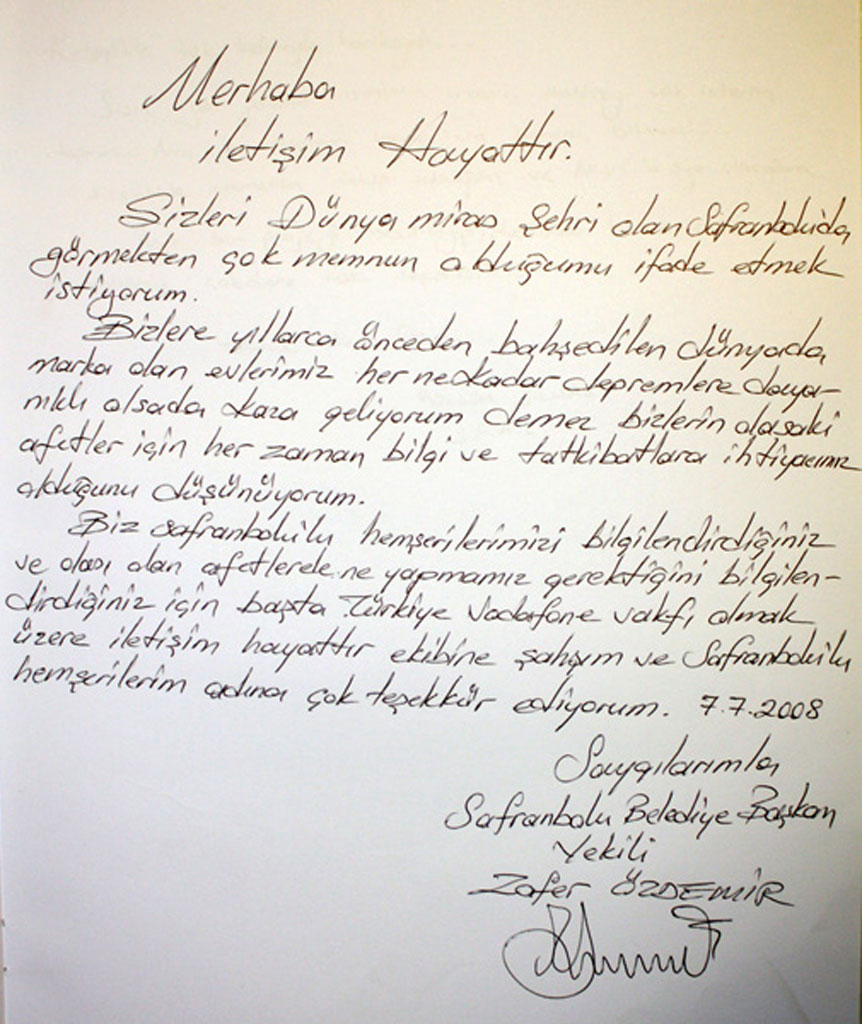 Merhaba
iletişim Hayattır.
Sizleri Dünya miras Şehri olan Safranboluda
görmekten çok memnun olduğumu ifade etmek
istiyorum.
Bizlere yıllarca önceden bahsedilen dünyada
marka olan evlerimiz her nekadar depremlere daya-
nıklı olsada kaza geliyorum demez bizlerin olasaki
afetler için her zaman bilgi ve tatkibatlara ihtiyacımız
olduğunu düşünüyorum.
Biz safranbolulu hemşerilerimizi bilgilendirdiğiniz
ve olası olan afetlerde ne yapmamız gerektiğini bilgilen-
dirdiğiniz için başta Türkiye vodafone vakfı olmak
üzere iletişim hayattır ekibine şahsım ve Safranbolulu
hemşerilerim adına çok teşekkür ediyorum. 7.7.2008
Saygılarımla
Safranbolu Belediye Başkan
Vekili
Zafer ÖZDEMİR